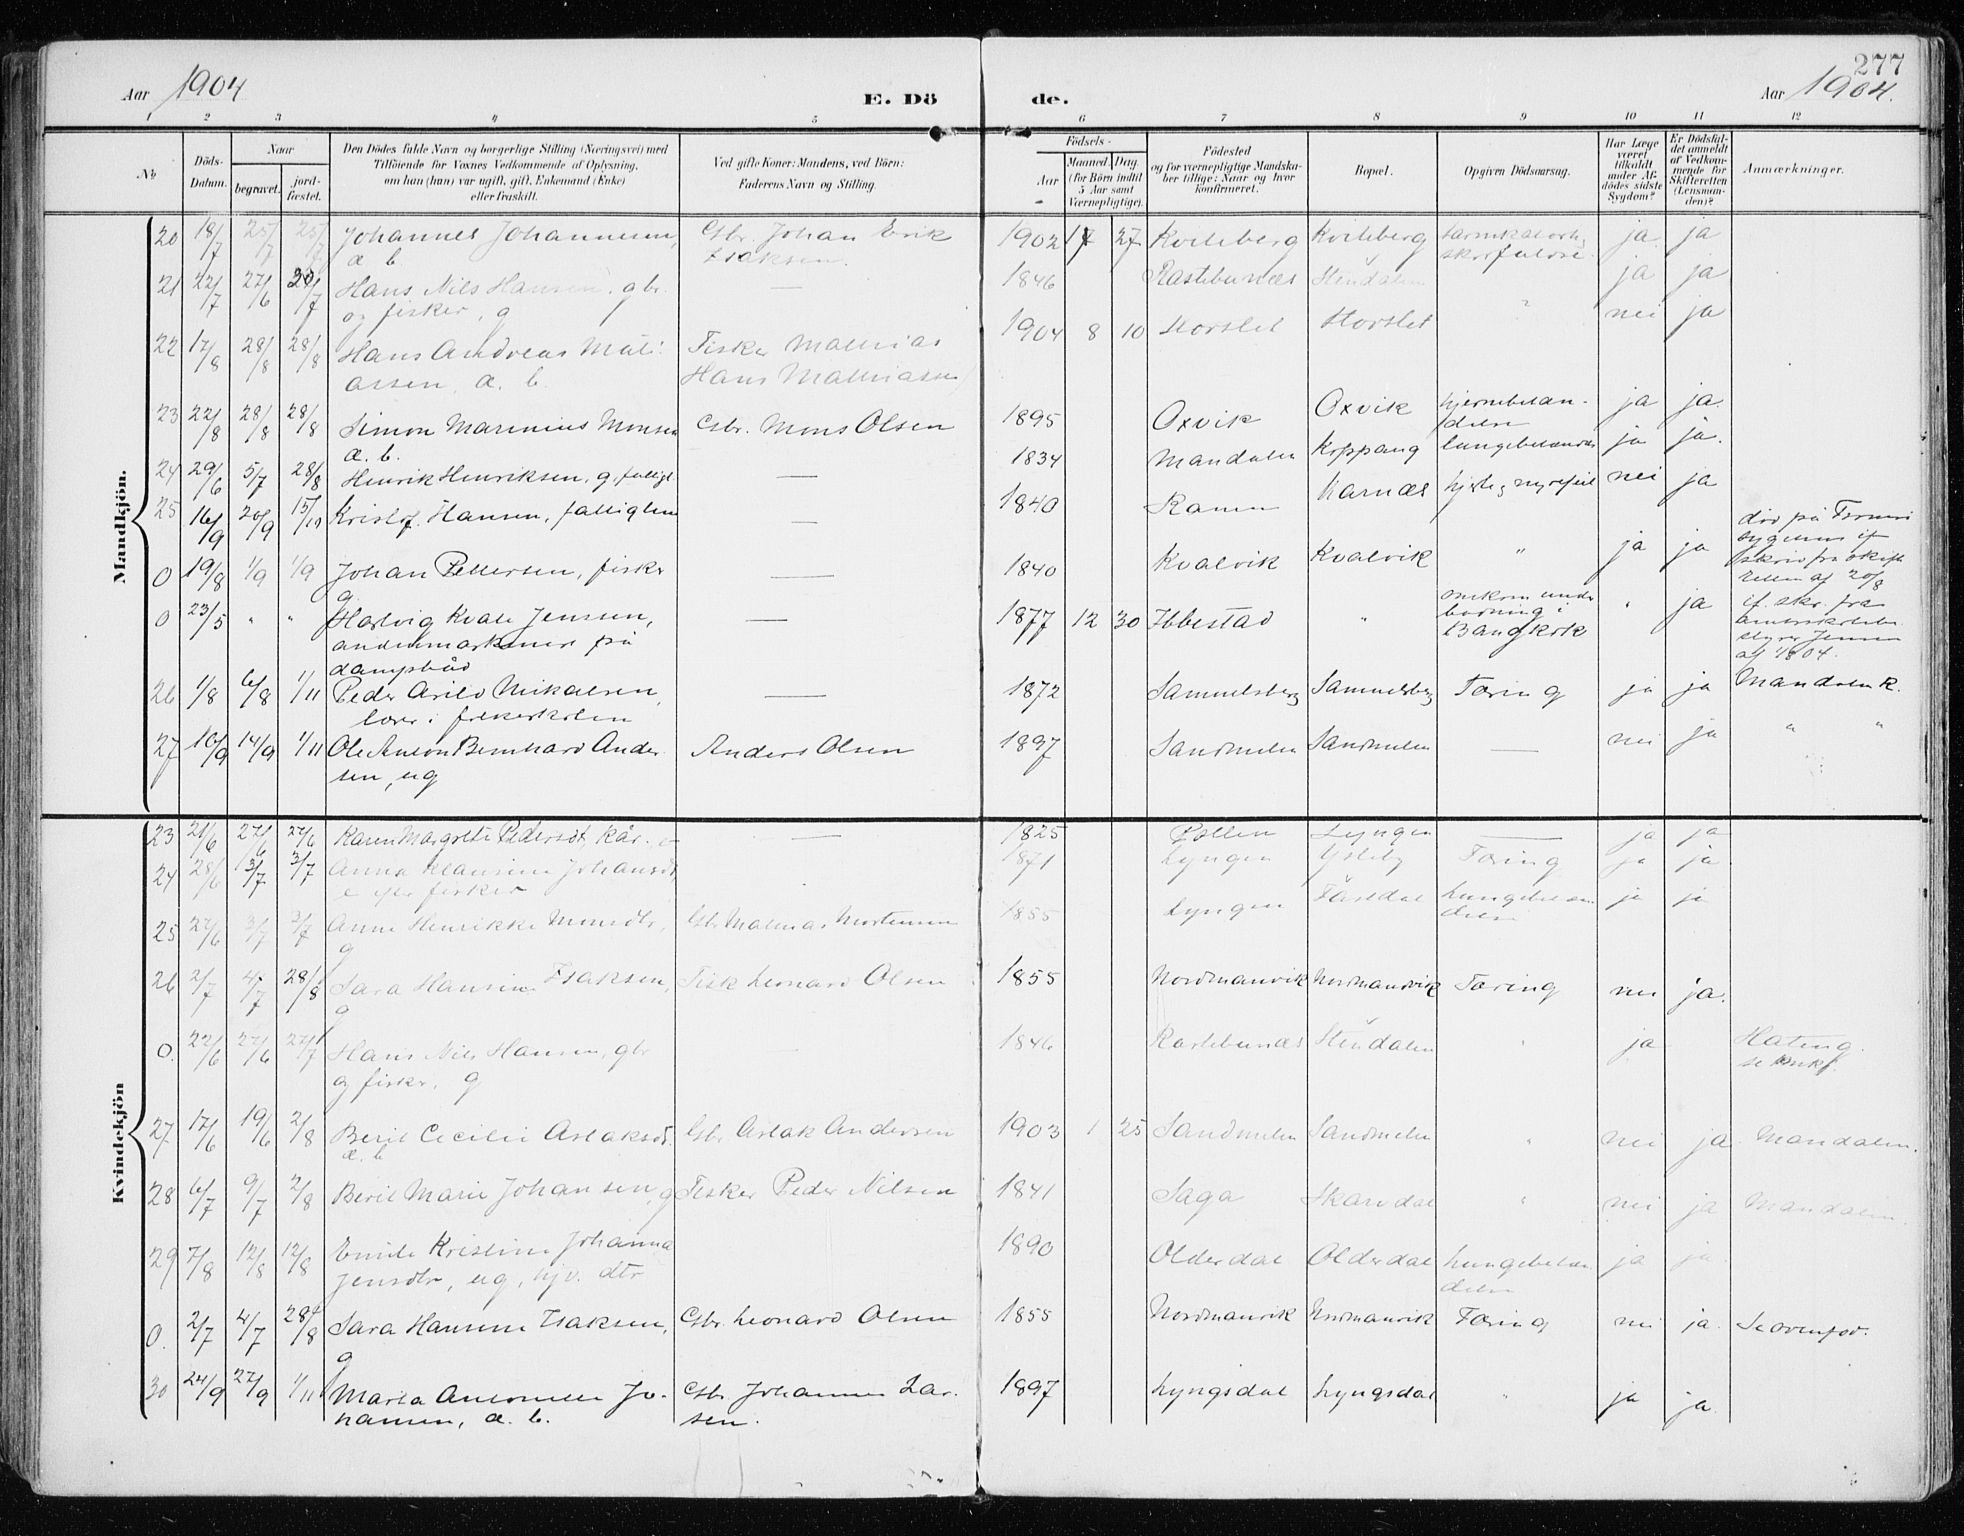 277
Aar 1904
E. Dö
de.
Aar 1904.
1 2 3 4 5 6 7 8 9 10 11 12
No
Döds-
Datum.
Naar
begravet.
jord-
fæstet.
Den Dödes fulde Navn og borgerlige Stilling (Næringsvei) med
Tilföiende for Voxnes Vedkommende af Oplysning,
om han (hun) var ugift, gift, Enkemand (Enke)
eller fraskilt.
Ved gifte Koner: Mandens, ved Börn:
Faderens Navn og Stilling.
Födsels-
Aar
Maaned. Dag.
(for Börn indtil
5 Aar samt
Værnepligtige).
Födested
og for værnepligtige Mandska-
ber tillige: Naar og hvor
konfirmeret.
Bopæl.
Opgiven Dödsaarsag.
Har Læge
været
tilkaldt
under Af-
dödes sidste
Sygdom?
Er Dödsfal-
det anmeldt
af Vedkom-
mende for
Skifteretten
(Lensman-
den)?
Anmærkninger.
Mandkjön.
20 18/7 25/7 25/7 Johannes Johannesen, Gbr. Johan Erik 1902 7 27 Kvileberg Kvileberg ja ja
æ b Isaksen.
21 22/7 27/6 7 Hans Nils Hansen, gbr. — 1846 Rastebunæs Stendalen ja ja
og fisker, g
22 17/8 28/8 28/8 Hans Andreas Mati- Fisker Mathias 1904 8 10 Storslet Storslet " nei ja
assen, æ. b. Hans Mathiassen
23 22/8 28/8 28/8 Simon Marinius Monsen Gbr. Mons Olsen 1895 Oxvik Oxvik hjernebetæn- ja ja.
æ. b. delse
24 29/6 5/7 28/8 Henrik Henriksen, g, fattigl. — 1834 Mandalen Koppang lungebetændelse ja ja.
25 16/9 20/9 15/10 Kristof. Hansen, fattiglem — 1840 Ranen Karnæs nei ja
0 19/8 1/9 1/9 Johan Pettersen, fisker — 1840 Kvalvik Kvalvik " ja ja død på Tromsø
g
sygehus if
skriv fra skifte
retten af 20/8
0 23/5 " " Hartvig Kvale Jenssen, — 1877 12 30 Ibbestad " omkom under " ja if. skr. fra
andenmaskinist på bording i
dampbåd Bangkok
styrer Jensen
af 1/8 04.
26 1/8 6/8 1/11 Peder Arild Mikalsen, — 1872 Sammelsberg Sammelsberg Tæring ja ja Mandalen k.
lærer i folkeskolen
27 10/9 14/9 1/11 Ole Anton Bernhard Ander- Anders Olsen 1897 Sandmelen Sandmelen — nei ja " "
sen, ug
Kvindekjön
23 21/6 27/6 27/6 Karen Margrete Pedersdt, kår. e — 1825 Pollen Lyngen — ja ja
24 28/6 3/7 3/7 Anna Klausine Johansdt, 1871 Lyngen Ysteby Tæring ja ja.
e efter fisker
25 27/6 3/7 3/7 Anne Henrikke Monsdtr, Gbr Mathias Mortensen 1855 Lyngen lungebetæn- ja ja
g delse
26 2/7 4/7 28/8 Sara Hansine Isaksen, Fisk Leonard Olsen 1855 Nordmanvik Nordmandvik Tæring nei ja.
g
0. 22/6 27/6 27/7 Hans Nils Hansen, gbr — 1846 Rastebunæs Stendalen " ja
og fisker, g se
27 17/6 19/6 2/8 Beril Cecilie Aslaksdt. Gbr. Aslak Andersen 1903 1 25 Sandmelen Sandmelen " nei ja Mandalen.
æ. b
28 6/7 9/7 2/8 Beril Marie Johansen, g Fisker Peder Nilsen 1841 Saga Skardal " nei ja Mandalen.
29 7/8 12/8 12/8 Emile Kristine Johanna 1890 Olderdal Olderdal lungebetæn- ja ja.
Jensdtr, ug, hjv. dtr delse
0. 2/7 4/7 28/8 Sara Hansine Isaksen, Gbr. Leonard Olsen 1855 Nordmanvik Nordmanvik Tæring nei ja. Se ovenfor.
g
30 24/9 27/9 1/11 Marta Antonette Jo- Gbr. Johannes Lar- 1897 Lyngsdal Lyngsdal " ja ja.
hansen, æ. b. sen.